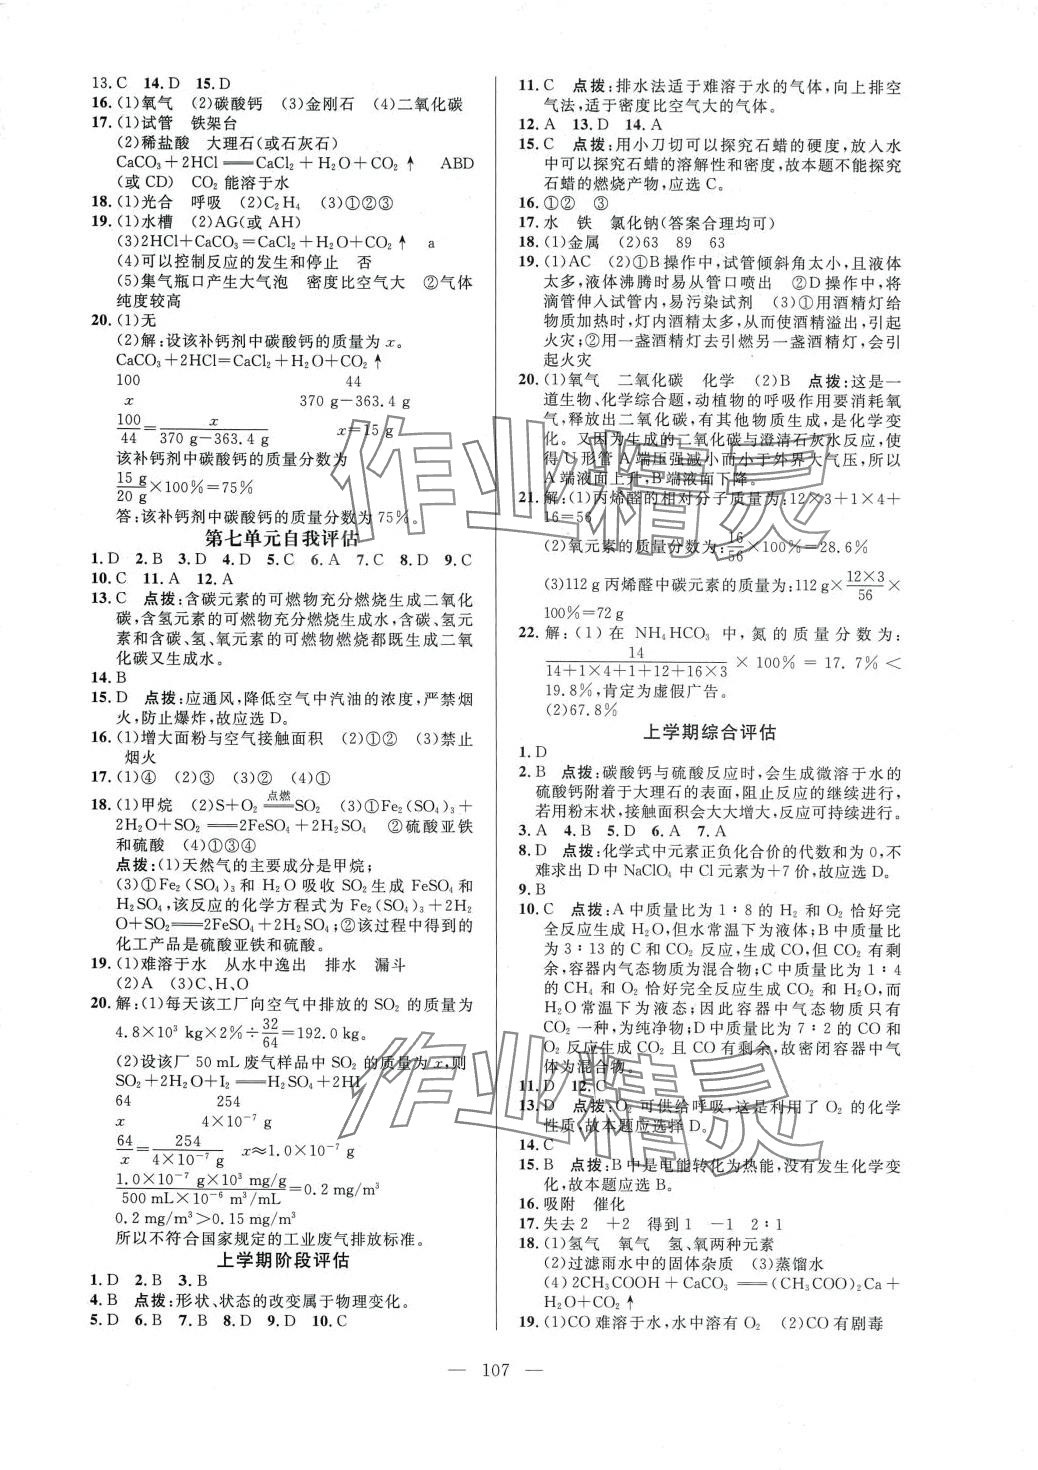 13. C 14. D 15. D
16. (1)氧气 (2)碳酸钙 (3)金刚石 (4)二氧化碳
17. (1)试管 铁架台
(2)稀盐酸 大理石(或石灰石)
CaCO₃+2HCl══CaCl₂+H₂O+CO₂↑ ABD
(或 CD) CO₂ 能溶于水
18. (1)光合 呼吸 (2)C₂H₄ (3)①②③
19. (1)水槽 (2)AG(或 AH)
(3)2HCl+CaCO₃=CaCl₂+H₂O+CO₂↑ a
(4)可以控制反应的发生和停止 否
(5)集气瓶口产生大气泡 密度比空气大 ②气体
纯度较高
20. (1)无
(2)解:设该补钙剂中碳酸钙的质量为 x。
CaCO₃+2HCl=CaCl₂+H₂O+CO₂↑
100 44
x 370 g−363.4 g
100/44=x/(370 g−363.4 g) x=15 g
该补钙剂中碳酸钙的质量分数为
15 g/20 g×100%=75%
答:该补钙剂中碳酸钙的质量分数为 75%。
第七单元自我评估
1. D 2. B 3. D 4. D 5. C 6. A 7. C 8. D 9. C
10. C 11. A 12. A
13. C 点拨:含碳元素的可燃物充分燃烧生成二氧化
碳,含氢元素的可燃物充分燃烧生成水,含碳、氢元
素和含碳、氢、氧元素的可燃物燃烧都既生成二氧
化碳又生成水。
14. B
15. D 点拨:应通风,降低空气中汽油的浓度,严禁烟
火,防止爆炸,故应选 D。
16. (1)增大面粉与空气接触面积 (2)①② (3)禁止
烟火
17. (1)④ (2)③ (3)② (4)①
18. (1)甲烷 (2)S+O₂══点燃══SO₂ (3)①Fe₂(SO₄)₃+
2H₂O+SO₂══2FeSO₄+2H₂SO₄ ②硫酸亚铁
和硫酸 (4)①③④
点拨:(1)天然气的主要成分是甲烷;
(3)①Fe₂(SO₄)₃ 和 H₂O 吸收 SO₂ 生成 FeSO₄ 和
H₂SO₄,该反应的化学方程式为 Fe₂(SO₄)₃+2H₂
O+SO₂══2FeSO₄+2H₂SO₄;②该过程中得到的
化工产品是硫酸亚铁和硫酸。
19. (1)难溶于水 从水中逸出 排水 漏斗
(2)A (3)C、H、O
20. 解:(1)每天该工厂向空气中排放的 SO₂ 的质量为
4.8×10³ kg×2%÷32/64=192.0 kg。
(2)设该厂 50 mL 废气样品中 SO₂ 的质量为 x,则
SO₂+2H₂O+I₂══H₂SO₄+2HI
64 254
x 4×10⁻⁷ g
64/x=254/(4×10⁻⁷ g) x≈1.0×10⁻⁷ g
(1.0×10⁻⁷ g×10³ mg/g)/(500 mL×10⁻⁶ m³/mL)=0.2 mg/m³
0.2 mg/m³>0.15 mg/m³
所以不符合国家规定的工业废气排放标准。
上学期阶段评估
1. D 2. B 3. B
4. B 点拨:形状、状态的改变属于物理变化。
5. D 6. B 7. B 8. D 9. D 10. C
11. C 点拨:排水法适于难溶于水的气体,向上排空
气法,适于密度比空气大的气体。
12. A 13. D 14. A
15. C 点拨:用小刀切可以探究石蜡的硬度,放入水
中可以探究石蜡的溶解性和密度,故本题不能探究
石蜡的燃烧产物,应选 C。
16. ①② ③
17. 水 铁 氯化钠(答案合理均可)
18. (1)金属 (2)63 89 63
19. (1)AC (2)①B 操作中,试管倾斜角太小,且液体
太多,液体沸腾时易从管口喷出 ②D 操作中,将
滴管伸入试管内,易污染试剂 (3)①用酒精灯给
物质加热时,灯内酒精太多,从而使酒精溢出,引起
火灾;②用一盏酒精灯去引燃另一盏酒精灯,会引
起火灾
20. (1)氧气 二氧化碳 化学 (2)B 点拨:这是一
道生物、化学综合题,动植物的呼吸作用要消耗氧
气,释放出二氧化碳,有其他物质生成,是化学变
化。又因为生成的二氧化碳与澄清石灰水反应,使
得 U 形管 A 端压强减小而小于外界大气压,所以
A 端液面上升,B 端液面下降。
21. 解:(1)丙烯醛的相对分子质量为:12×3+1×4+
16=56
(2)氧元素的质量分数为:16/56×100%=28.6%
(3)112 g 丙烯醛中碳元素的质量为:112 g×(12×3)/56×
100%=72 g
22. 解:(1)在 NH₄HCO₃ 中,氮的质量分数为:
14/(14+1×4+1+12+16×3)×100%=17.7%<
19.8%,肯定为虚假广告。
(2)67.8%
上学期综合评估
1. D
2. B 点拨:碳酸钙与硫酸反应时,会生成微溶于水的
硫酸钙附着于大理石的表面,阻止反应的继续进行,
若用粉末状,接触面积会大大增大,反应可持续进行。
3. A 4. B 5. D 6. A 7. A
8. D 点拨:化学式中元素正负化合价的代数和为 0,不
难求出 D 中 NaClO₄ 中 Cl 元素为+7 价,故应选 D。
9. B
10. C 点拨:A 中质量比为 1∶8 的 H₂ 和 O₂ 恰好完
全反应生成 H₂O,但水常温下为液体;B 中质量比
为 3∶13 的 C 和 CO₂ 反应,生成 CO,但 CO₂ 有剩
余,容器内气态物质为混合物;C 中质量比为 1∶4
的 CH₄ 和 O₂ 恰好完全反应生成 CO₂ 和 H₂O,而
H₂O 常温下为液态;因此容器中气态物质只有
CO₂ 一种,为纯净物;D 中质量比为 7∶2 的 CO 和
O₂ 反应生成 CO₂ 且 CO 有剩余,故密闭容器中气
体为混合物。
11. D 12. C
13. D 点拨:O₂ 可供给呼吸,这是利用了 O₂ 的化学
性质,故本题应选择 D。
14. C
15. B 点拨:B 中是电能转化为热能,没有发生化学变
化,故本题应选 B。
16. 吸附 催化
17. 失去 2 +2 得到 1 −1 2∶1
18. (1)氢气 氧气 氢、氧两种元素
(2)过滤雨水中的固体杂质 (3)蒸馏水
(4)2CH₃COOH+CaCO₃══(CH₃COO)₂Ca+
H₂O+CO₂↑
19. (1)CO 难溶于水,水中溶有 O₂ (2)CO 有剧毒
— 107 —
作业精灵
作业精灵